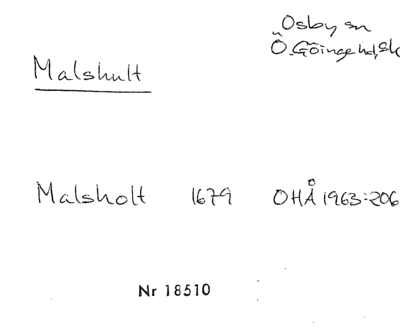 Osby sn
Ö. Göinge hd, Sk
Malshult
Malsholt 1679 OHÅ 1963:206
Nr 18510